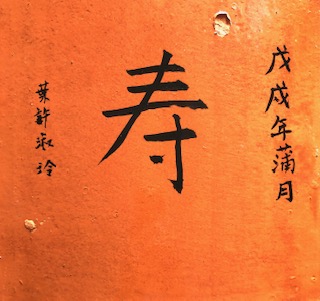 戊戌年蒲月
寿
葉許淑玲